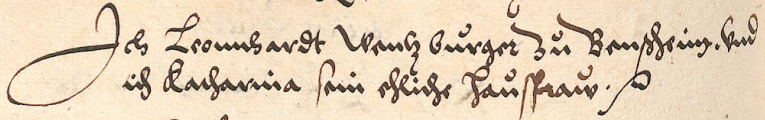 Ich Leonnhardt Wentz burger zu Bensheim. vnd
ich Katharina sein ehliche hausfraw.